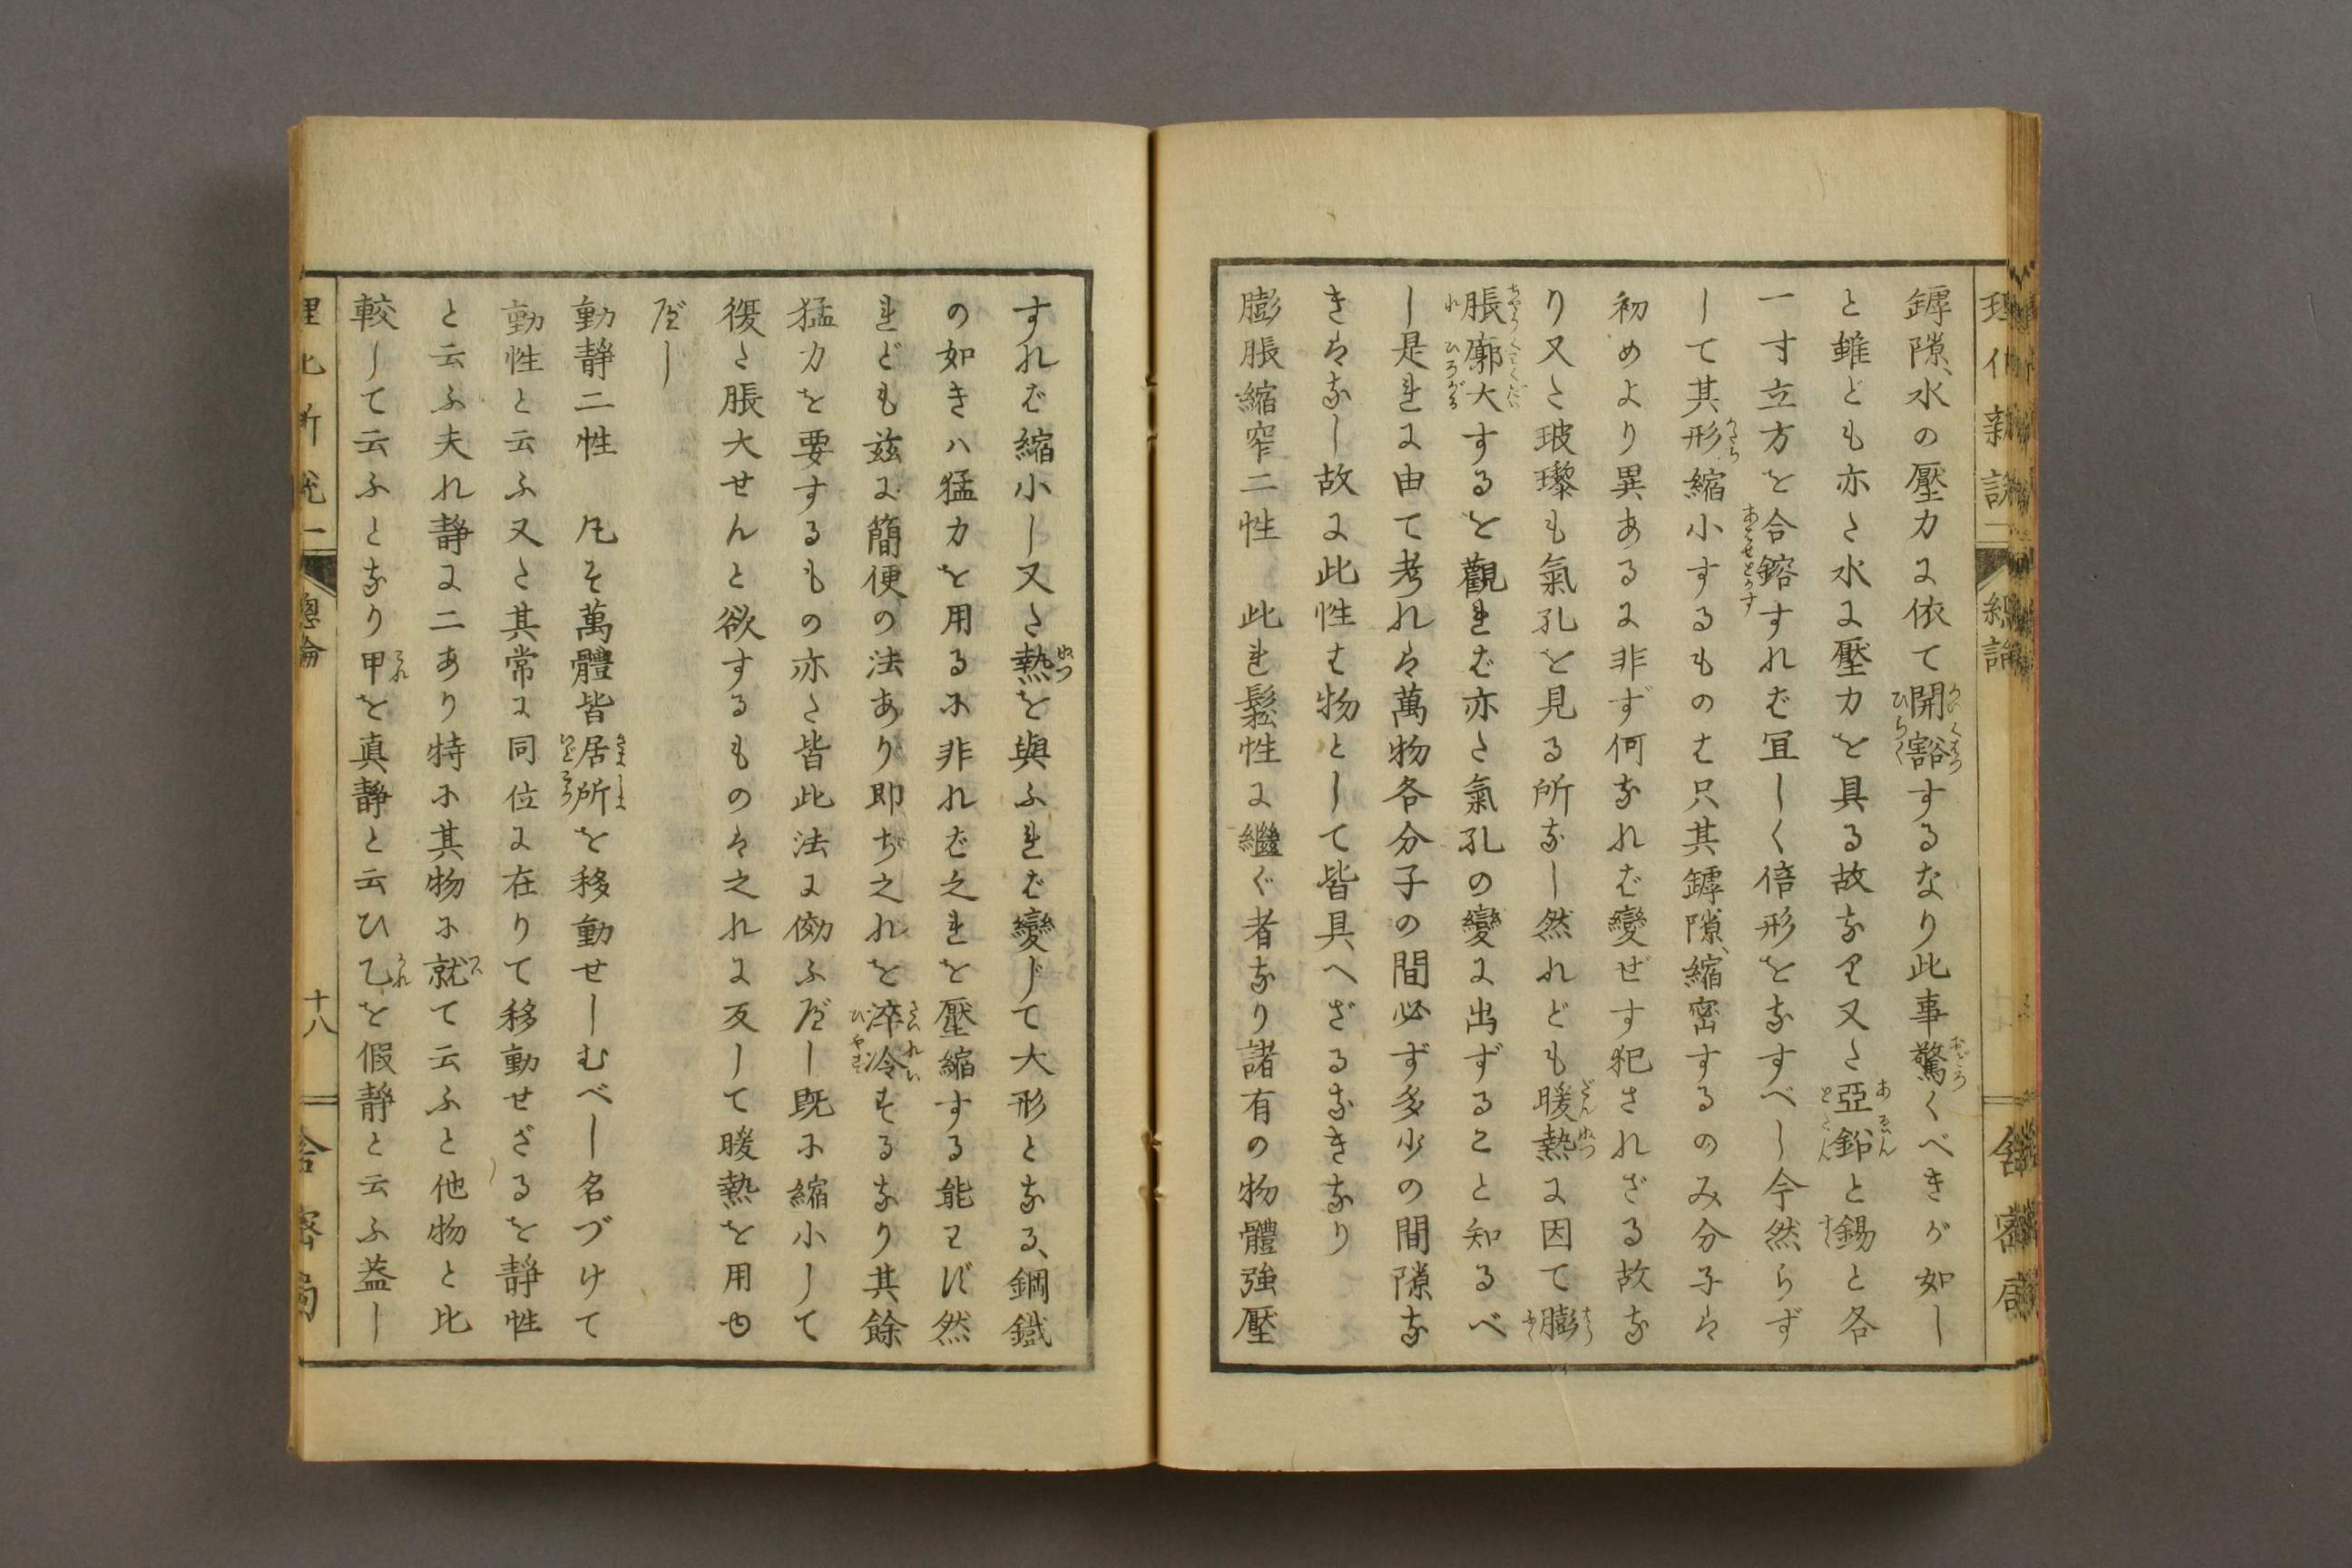 罅隙、水の壓力に依て開豁するなり此事驚くべきが如し
と雖ども亦た水に壓力を具る故なり又た亞鉛と錫と各
一寸立方を合鎔すれば宜しく倍形をなすべし今然らず
して其形縮小するものは只其罅隙、縮密するのみ分子は
初めより異あるに非ず何なれば變ぜす犯されざる故な
り又た玻瓈も氣孔を見る所なし然れども暖熱に因て膨
脹廓大するを觀れば亦た氣孔の變に出ずることと知るべ
し是れに由て考れは萬物各分子の間必ず多少の間隙な
きはなし故に此性は物として皆具へざるなきなり
膨脹縮窄二性　此れ鬆性に繼ぐ者なり諸有の物體強壓
すれば縮小し又た熱を與ふれば變じて大形となる、鋼鐵
の如きハ猛力を用るに非れば之れを壓縮する能はず然
れども茲に簡便の法あり即ち之れを淬冷するなり其餘
猛力を要するもの亦た皆此法に傚ふべし既に縮小して
復た脹大せんと欲するものは之れに反して暖熱を用ゆ
べし
動静二性　凡そ萬體皆居所を移動せしむべし名づけて
動性と云ふ又た其常に同位に在りて移動せざるを静性
と云ふ夫れ静に二あり特に其物に就て云ふと他物と比
較して云ふとなり甲を真静と云ひ乙を假静と云ふ蓋し
總論
十八